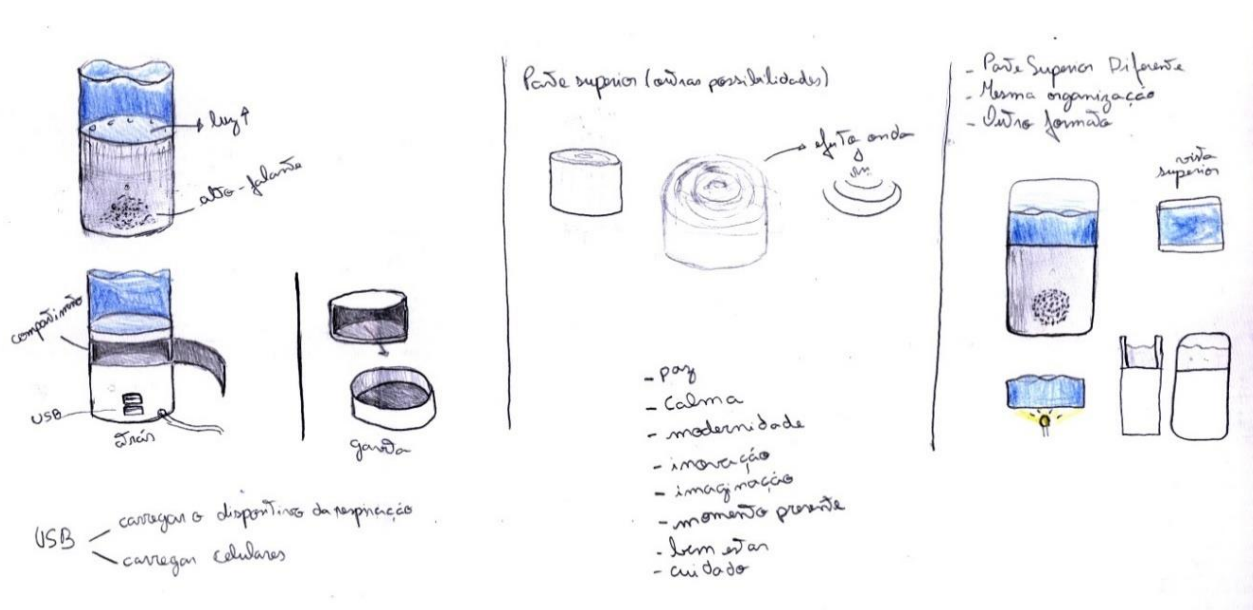 luz↑
alto-falante
compartimento
USB
atrás
gaveta
USB
carregar o dispositivo da respiração
carregar celulares
Parte superior (outras possibilidades)
efeito onda
- paz
- calma
- modernidade
- inovação
- imaginação
- momento presente
- bem estar
- cuidado
- Parte Superior Diferente
- Mesma organização
- Outro formato
vista
superior